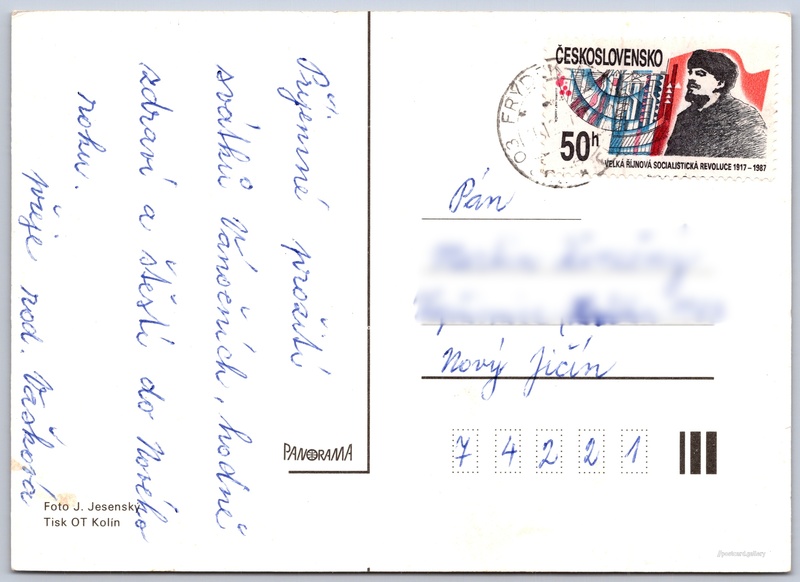 Příjemné prožití
svátků Vánočních, hodně
zdraví a štěstí do Nového
roku.
přeje rod. Vašková
Foto J. Jesenský
Tisk OT Kolín
PANORAMA
ČESKOSLOVENSKO
50h
VELKÁ ŘÍJNOVÁ SOCIALISTICKÁ REVOLUCE 1917–1987
Pán
Nový Jičín
74221
//postcard.gallery